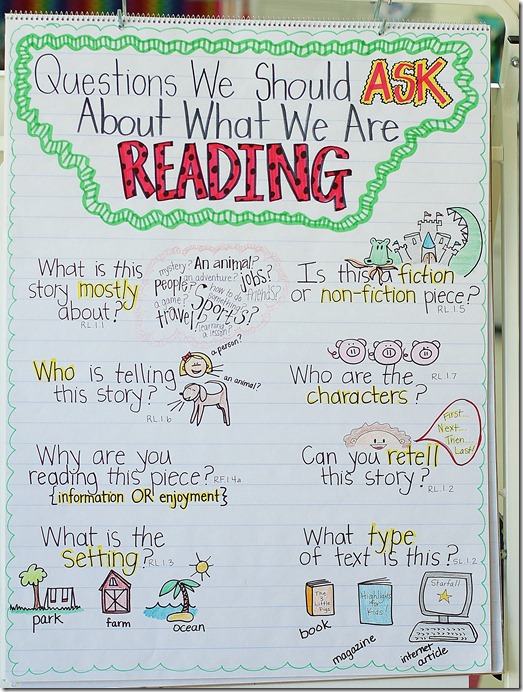 Questions We Should ASK
About What We Are
READING
What is this
story mostly
about?
RL.1.1
mystery? An animal?
an adventure? jobs?
People? how to do something? friends?
a game? Sports?
travel? learning a lesson?
Is this a fiction
or non-fiction piece?
RL.1.5
Who is telling
this story?
RL.1.6
a person?
an animal?
Who are the RL.1.7
characters?
Why are you
reading this piece? RF.1.4a
{information OR enjoyment}
Can you retell
this story?
RL.1.2
First...
Next...
Then...
Last!
What is the
setting? RL.1.3
park
farm
ocean
What type
of text is this? SL.1.2
The 3 Little Pigs
book
Highlights for Kids!
magazine
Starfall
internet article